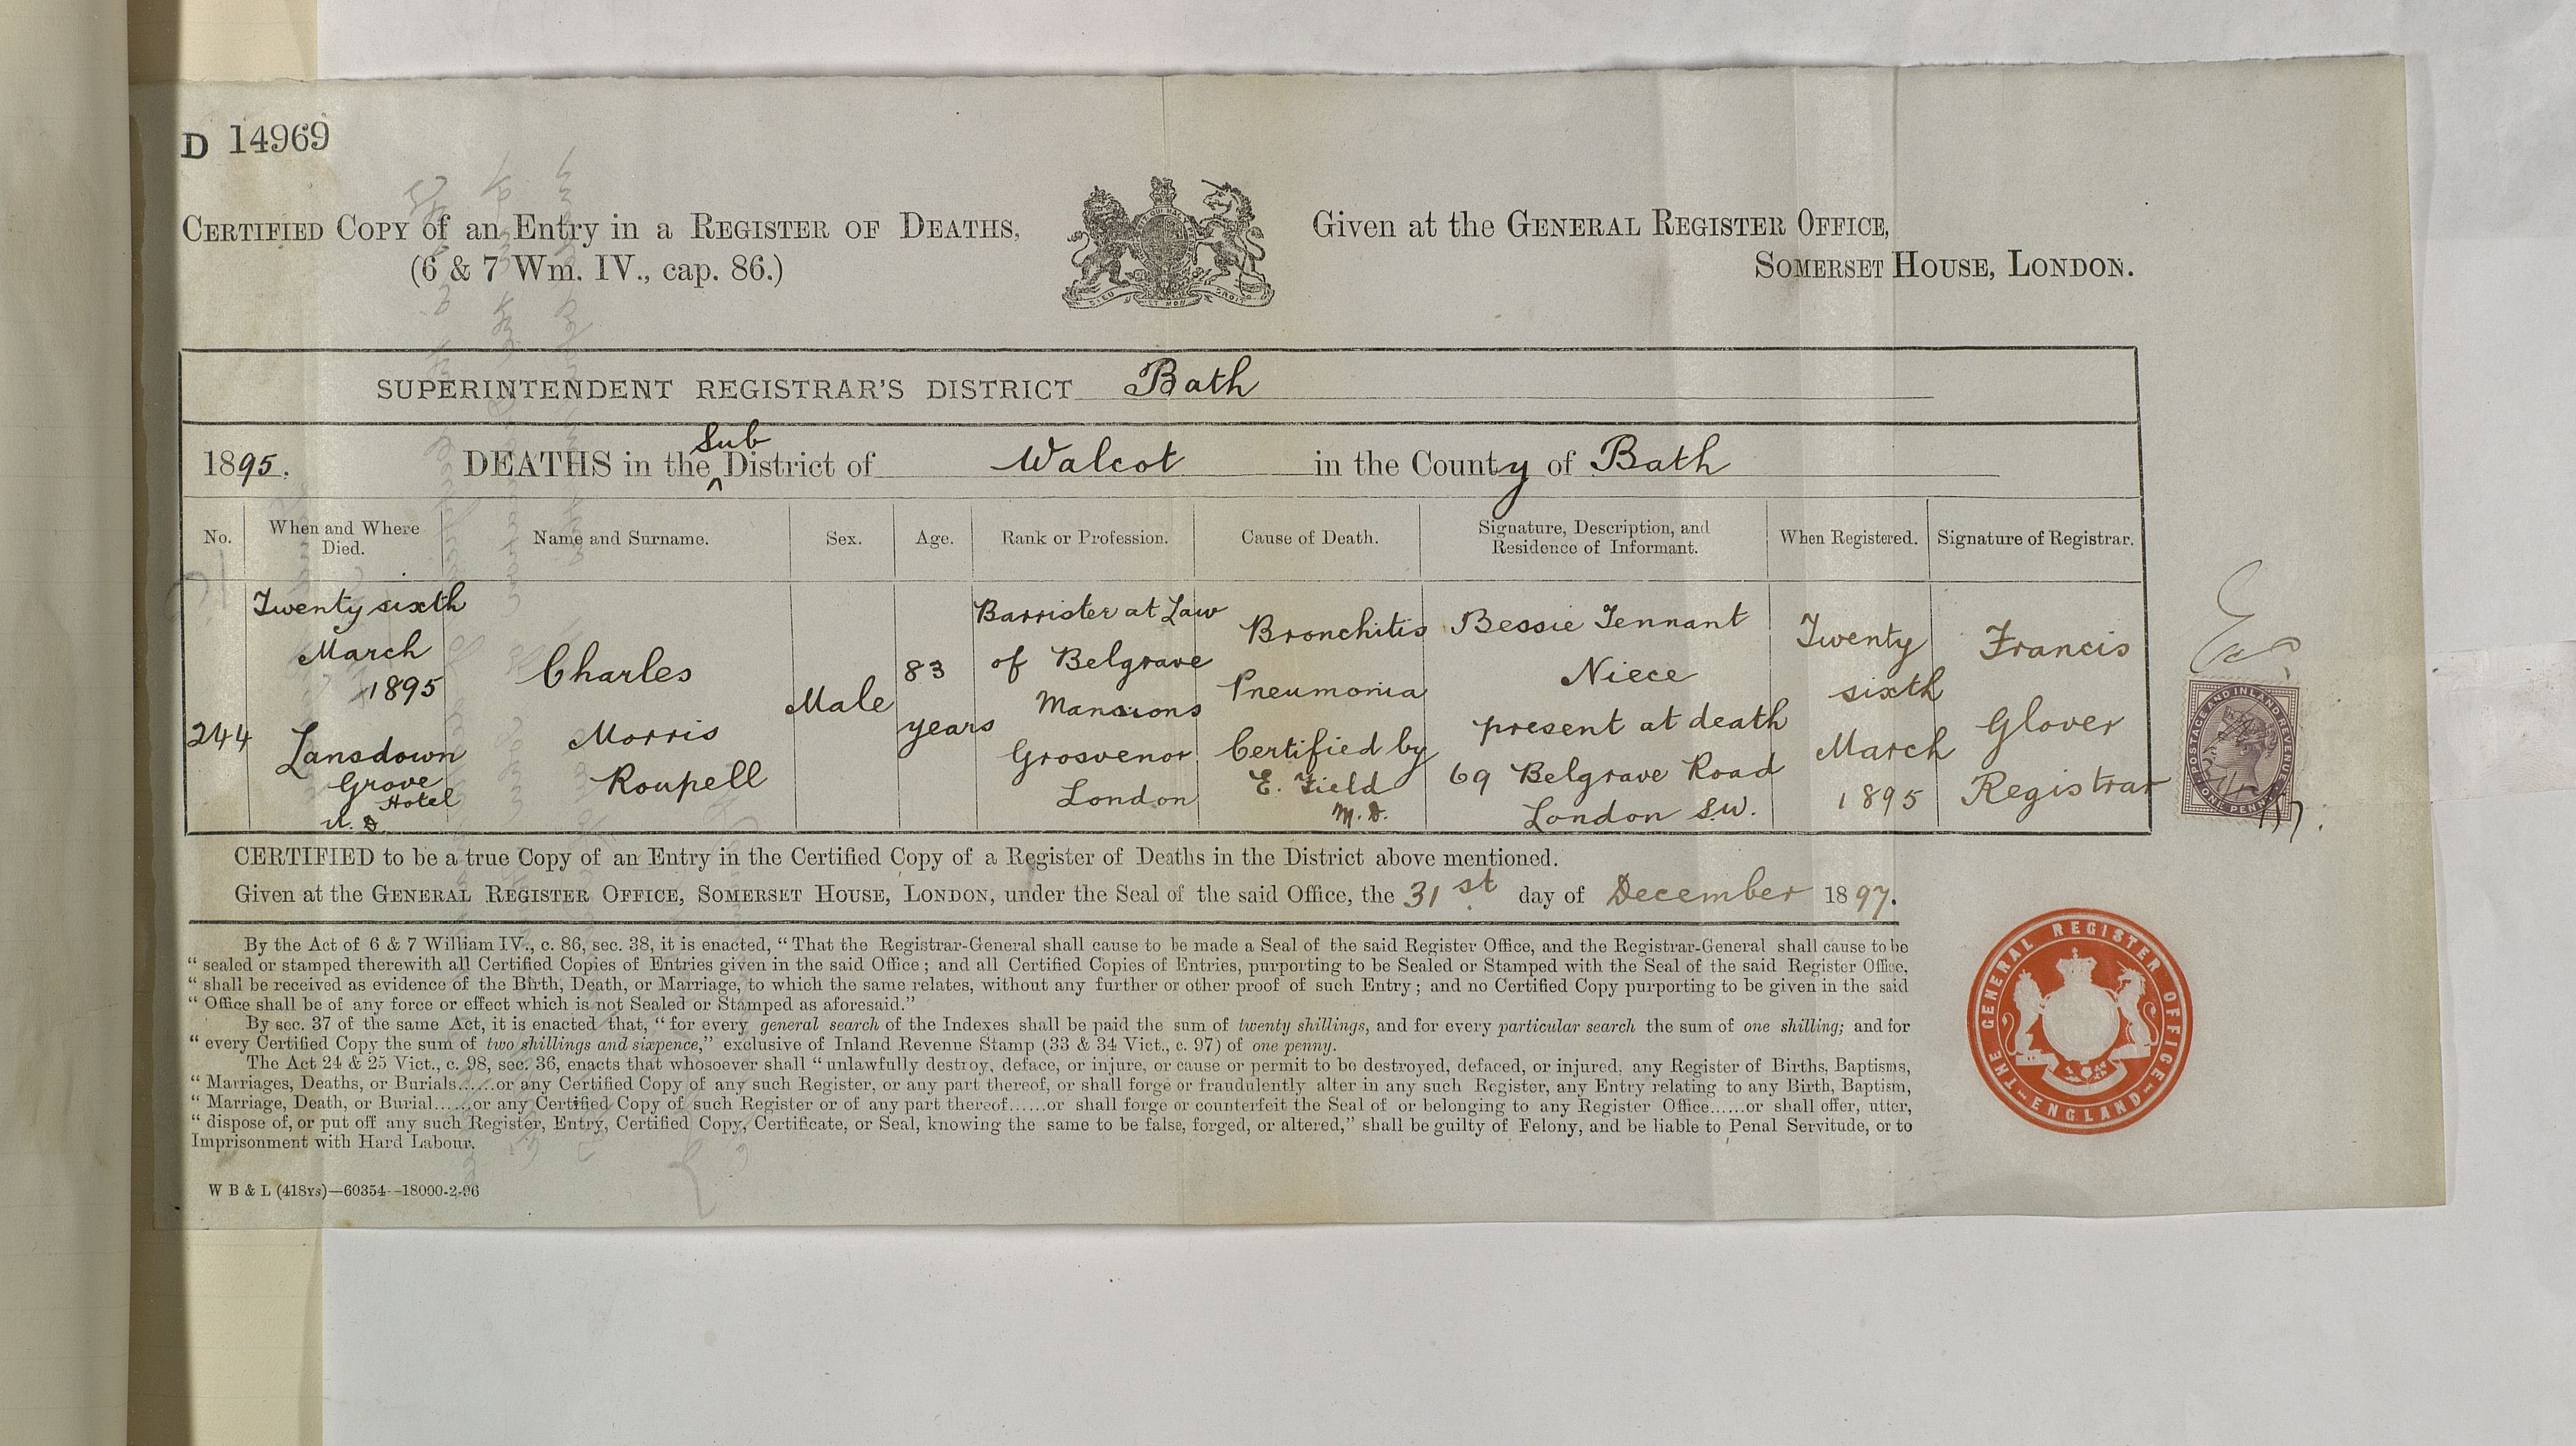 D 14969
CERTIFIED COPY of an Entry in a REGISTER OF DEATHS,
(6 & 7 Wm. IV., cap. 86.)
Given at the GENERAL REGISTER OFFICE,
SOMERSET HOUSE, LONDON.
DIEU ET MON DROIT
SUPERINTENDENT REGISTRAR'S DISTRICT Bath
Sub
1895. DEATHS in the ^ District of Walcot in the County of Bath
No.
When and Where
Died.
Name and Surname.
Sex.
Age.
Rank or Profession.
Cause of Death.
Signature, Description, and
Residence of Informant.
When Registered.
Signature of Registrar.
244
Twenty sixth
March
1895
Lansdown
Grove
Hotel
Charles
Morris
Roupell
Male
83
years
Barrister at Law
of Belgrave
Mansions
Grosvenor
London
Bronchitis
Pneumonia
Certified by
E. Field
M.D.
Bessie Tennant
Niece
present at death
69 Belgrave Road
London S.W.
Twenty
sixth
March
1895
Francis
Glover
Registrar
POSTAGE AND INLAND REVENUE
ONE PENNY
CERTIFIED to be a true Copy of an Entry in the Certified Copy of a Register of Deaths in the District above mentioned.
Given at the GENERAL REGISTER OFFICE, SOMERSET HOUSE, LONDON, under the Seal of the said Office, the 31st day of December 1897.
By the Act of 6 & 7 William IV., c. 86, sec. 38, it is enacted, "That the Registrar-General shall cause to be made a Seal of the said Register Office, and the Registrar-General shall cause to be
"sealed or stamped therewith all Certified Copies of Entries given in the said Office; and all Certified Copies of Entries, purporting to be Sealed or Stamped with the Seal of the said Register Office,
"shall be received as evidence of the Birth, Death, or Marriage, to which the same relates, without any further or other proof of such Entry; and no Certified Copy purporting to be given in the said
"Office shall be of any force or effect which is not Sealed or Stamped as aforesaid."
By sec. 37 of the same Act, it is enacted that, "for every general search of the Indexes shall be paid the sum of twenty shillings, and for every particular search the sum of one shilling; and for
"every Certified Copy the sum of two shillings and sixpence," exclusive of Inland Revenue Stamp (33 & 34 Vict., c. 97) of one penny.
The Act 24 & 25 Vict., c. 98, sec. 36, enacts that whosoever shall "unlawfully destroy, deface, or injure, or cause or permit to be destroyed, defaced, or injured, any Register of Births, Baptisms,
"Marriages, Deaths, or Burials......or any Certified Copy of any such Register, or any part thereof, or shall forge or fraudulently alter in any such Register, any Entry relating to any Birth, Baptism,
"Marriage, Death, or Burial......or any Certified Copy of such Register or of any part thereof......or shall forge or counterfeit the Seal of or belonging to any Register Office......or shall offer, utter,
"dispose of, or put off any such Register, Entry, Certified Copy, Certificate, or Seal, knowing the same to be false, forged, or altered," shall be guilty of Felony, and be liable to Penal Servitude, or to
Imprisonment with Hard Labour.
THE GENERAL REGISTER OFFICE
ENGLAND
W B & L (418YS)—60354—18000-2-96